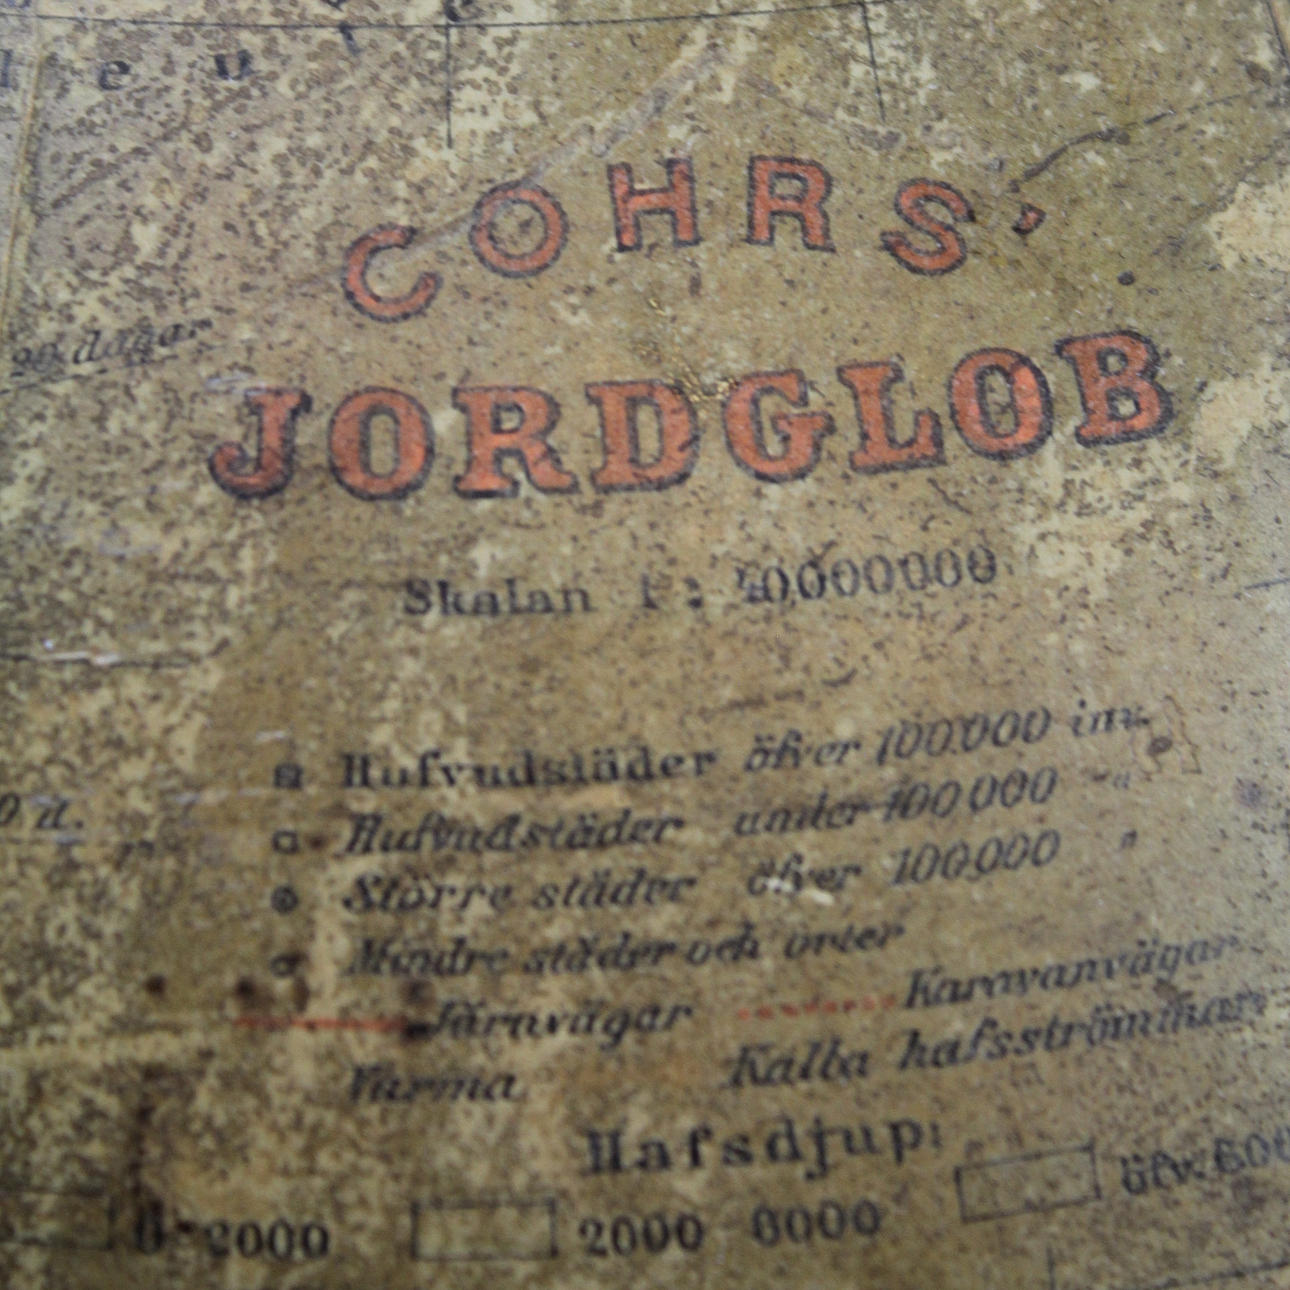 20 dagar
COHRS'
JORDGLOB
Skalan 1 : 40000000
Hufvudstäder öfver 100000 inv.
Hufvudstäder under 100000 "
Större städer öfver 100000 "
Mindre städer och orter
Järnvägar Karavanvägar
Varma Kalla hafsströmmar
Hafsdjup:
0-2000 2000 6000 öfv. 600